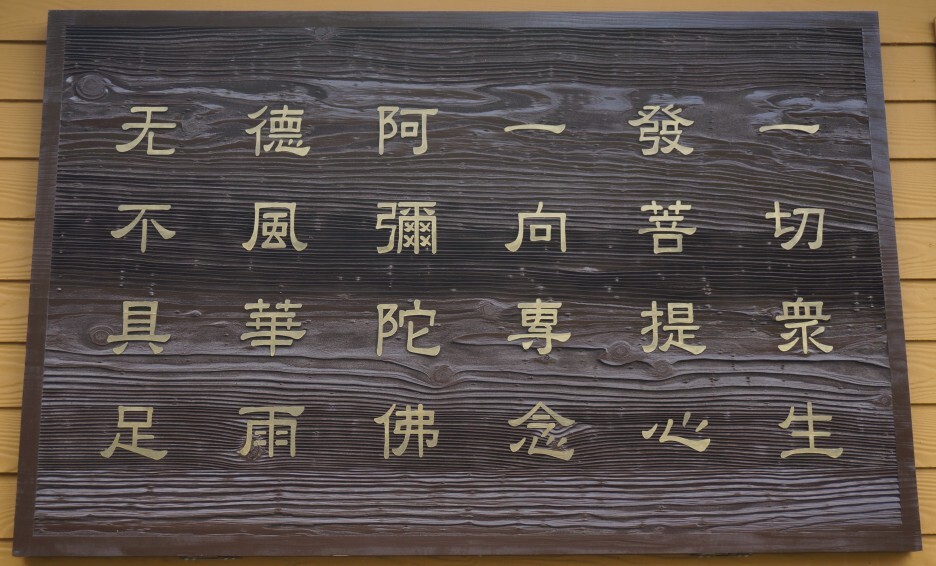 一切衆生
發菩提心
一向専念
阿彌陀佛
德風華雨
无不具足